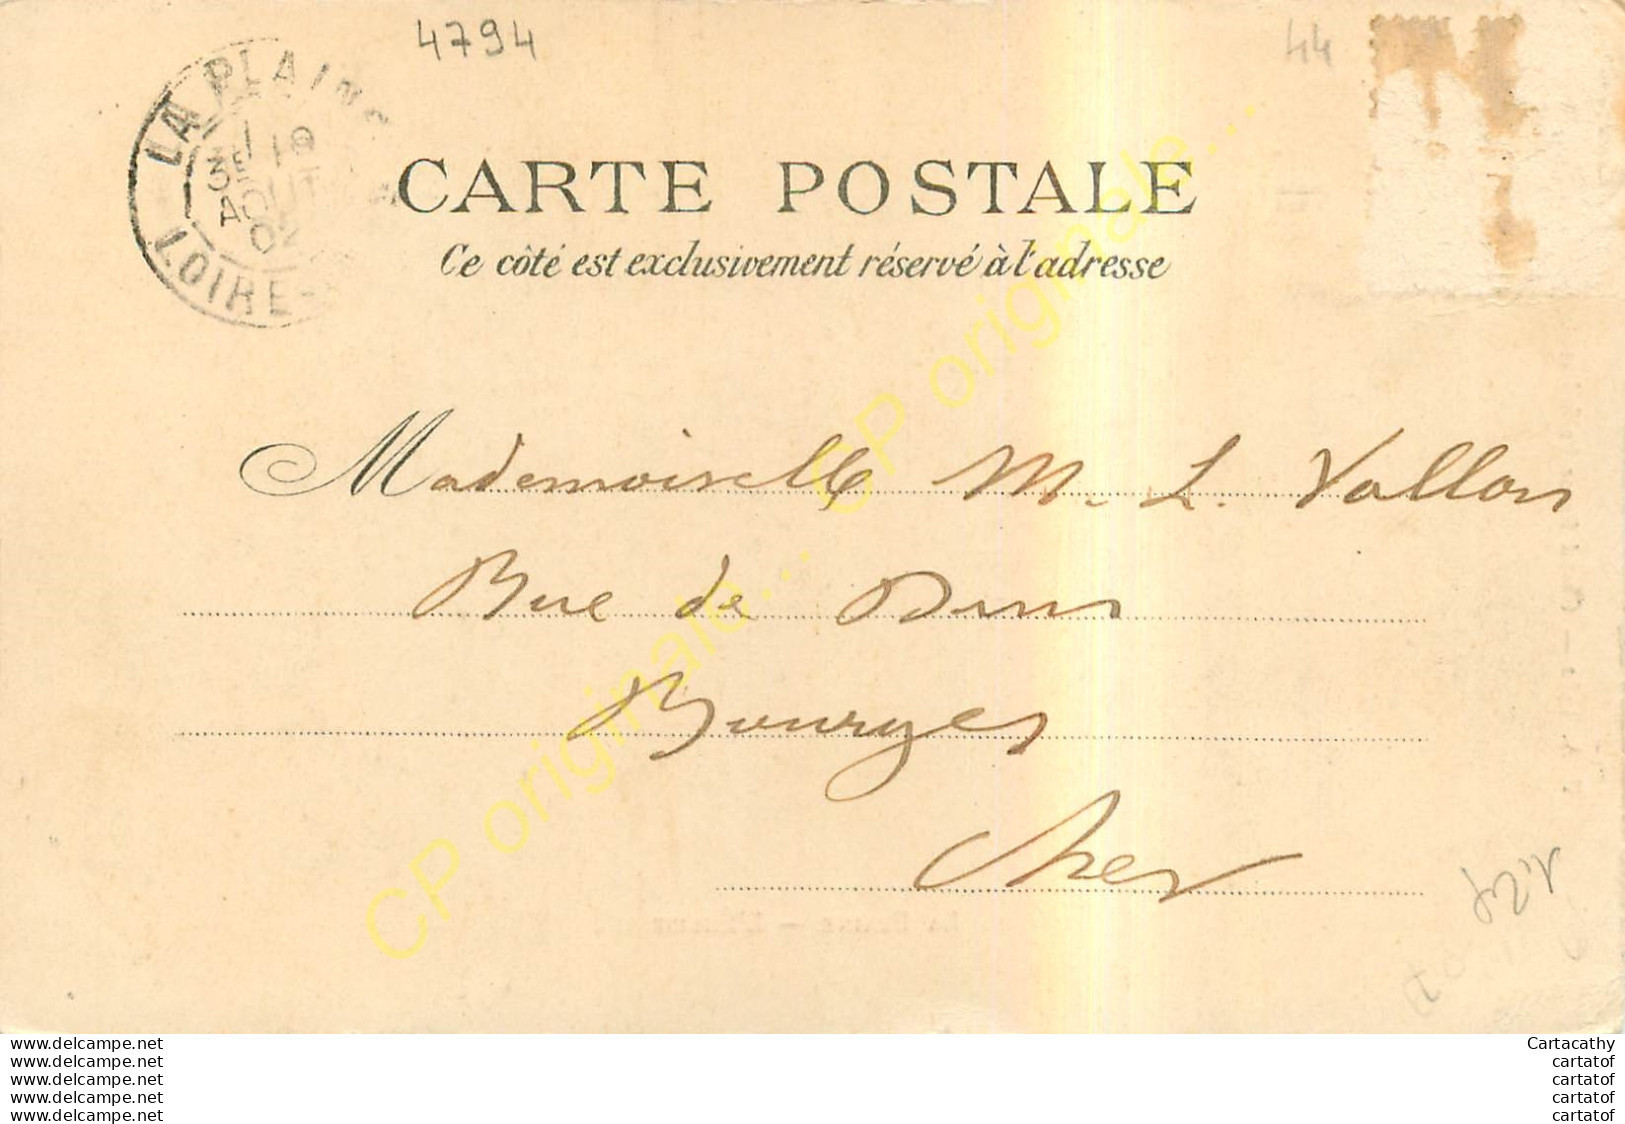 4794
44
LA PLAINE
3E 18
AOUT
02
LOIRE-
CARTE POSTALE
Ce côté est exclusivement réservé à l'adresse
Mademoiselle M. L. Vallois
Rue de Dun
Bourges
Cher
CP originale... CP originale...
www.delcampe.net
www.delcampe.net
www.delcampe.net
www.delcampe.net
www.delcampe.net
Cartacathy
cartatof
cartatof
cartatof
cartatof